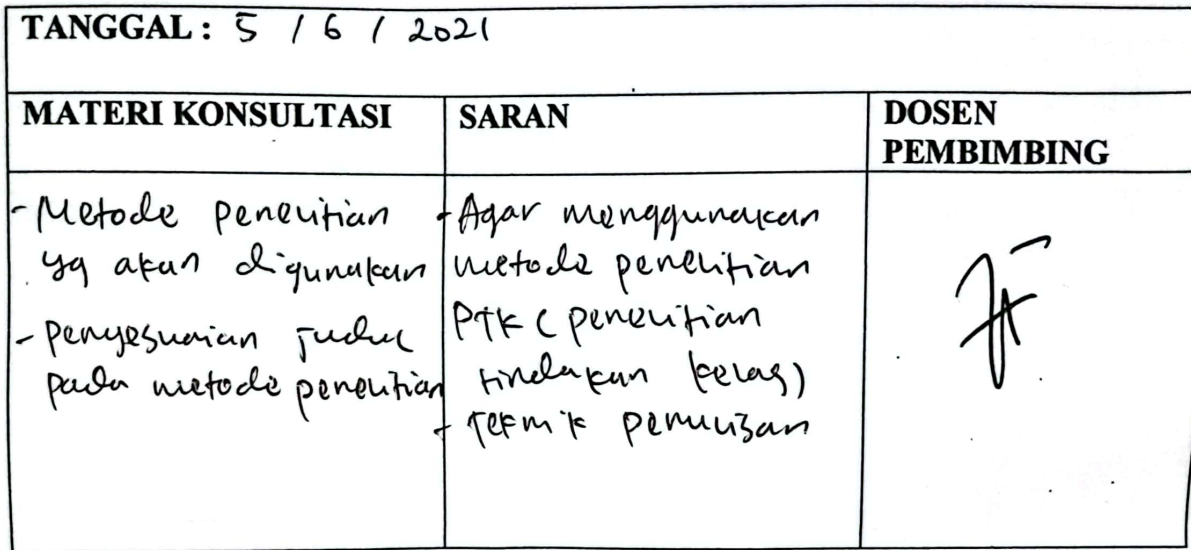 TANGGAL : 5 / 6 / 2021
MATERI KONSULTASI
SARAN
DOSEN
PEMBIMBING
- Metode penelitian
yg akan digunakan
- Penyesuaian Judul
pada metode penelitian
- Agar menggunakan
metode penelitian
PTK ( penelitian
tindakan kelas)
- Teknik penulisan